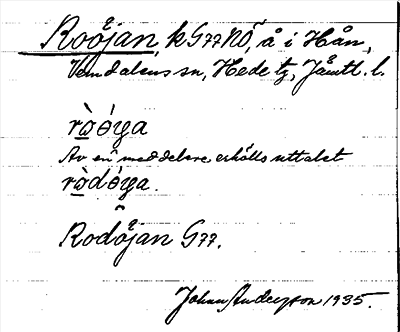 Rooåjan, k G77 NÖ, å i Hån,
Vemdalens sn, Hede tg, Jämtl. l.
Av en meddelare erhölls uttalet
Rodåjan G77.
Johan Anderson 1935.